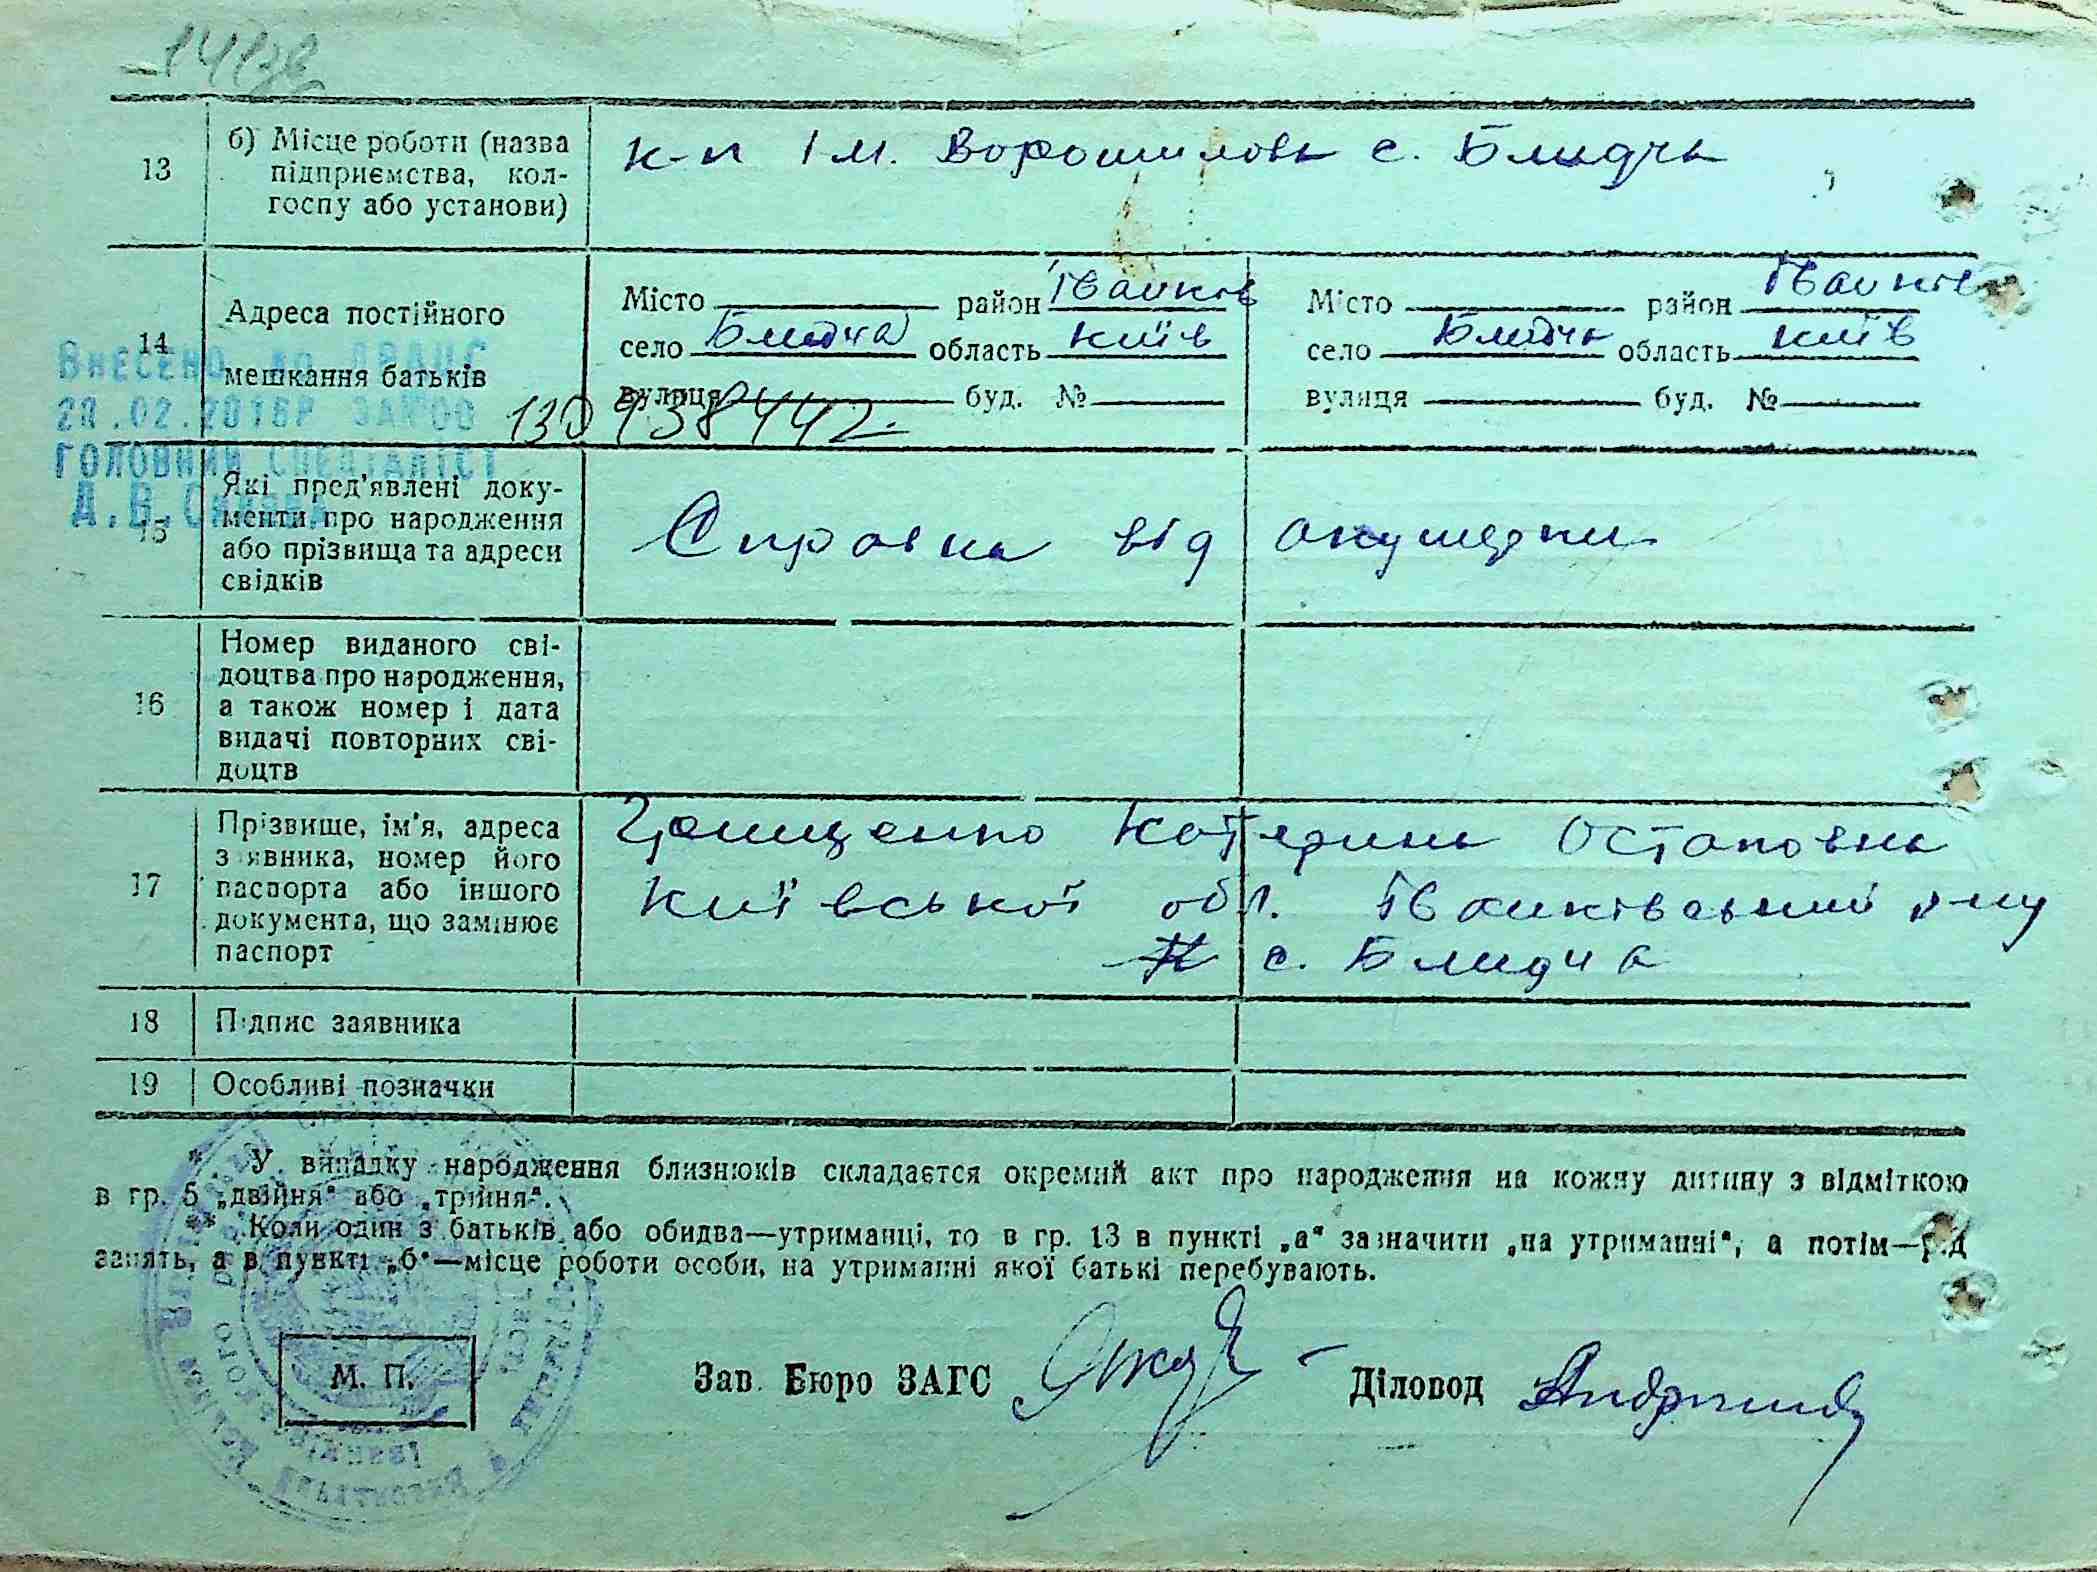 13
б) Місце роботи (назва
підприємства, кол-
госпу або установи)
к-п ім. Ворошилова с. Блидча
14
Адреса постійного
мешкання батьків
Місто район Іванків
село Блидча область Київ
вулиця буд. №
Місто район Іванків
село Блидча область Київ
вулиця буд. №
Внесено до ДРАЦС
.02.2016р
головний спеціаліст
А.В.
15
Які пред’явлені доку-
менти про народження
або прізвища та адреси
свідків
Справка від акушерки
16
Номер виданого сві-
доцтва про народження,
а також номер і дата
видачі повторних сві-
доцтв
17
Прізвище, ім’я, адреса
заявника, номер його
паспорта або іншого
документа, що замінює
паспорт
Грищенко Катерина Остаповна
Київської обл. Іванківський р-ну
с. Блидча
18
Підпис заявника
19
Особливі позначки
* У випадку народження близнюків складається окремий акт про народження на кожну дитину з відміткою
в гр. 5 „двійня“ або „трійня“.
** Коли один з батьків або обидва—утриманці, то в гр. 13 в пункті „а“ зазначити „на утриманні“, а потім—рід
занять, а в пункті „б“—місце роботи особи, на утриманні якої батькі перебувають.
М. П.
Зав. Бюро ЗАГС
Діловод